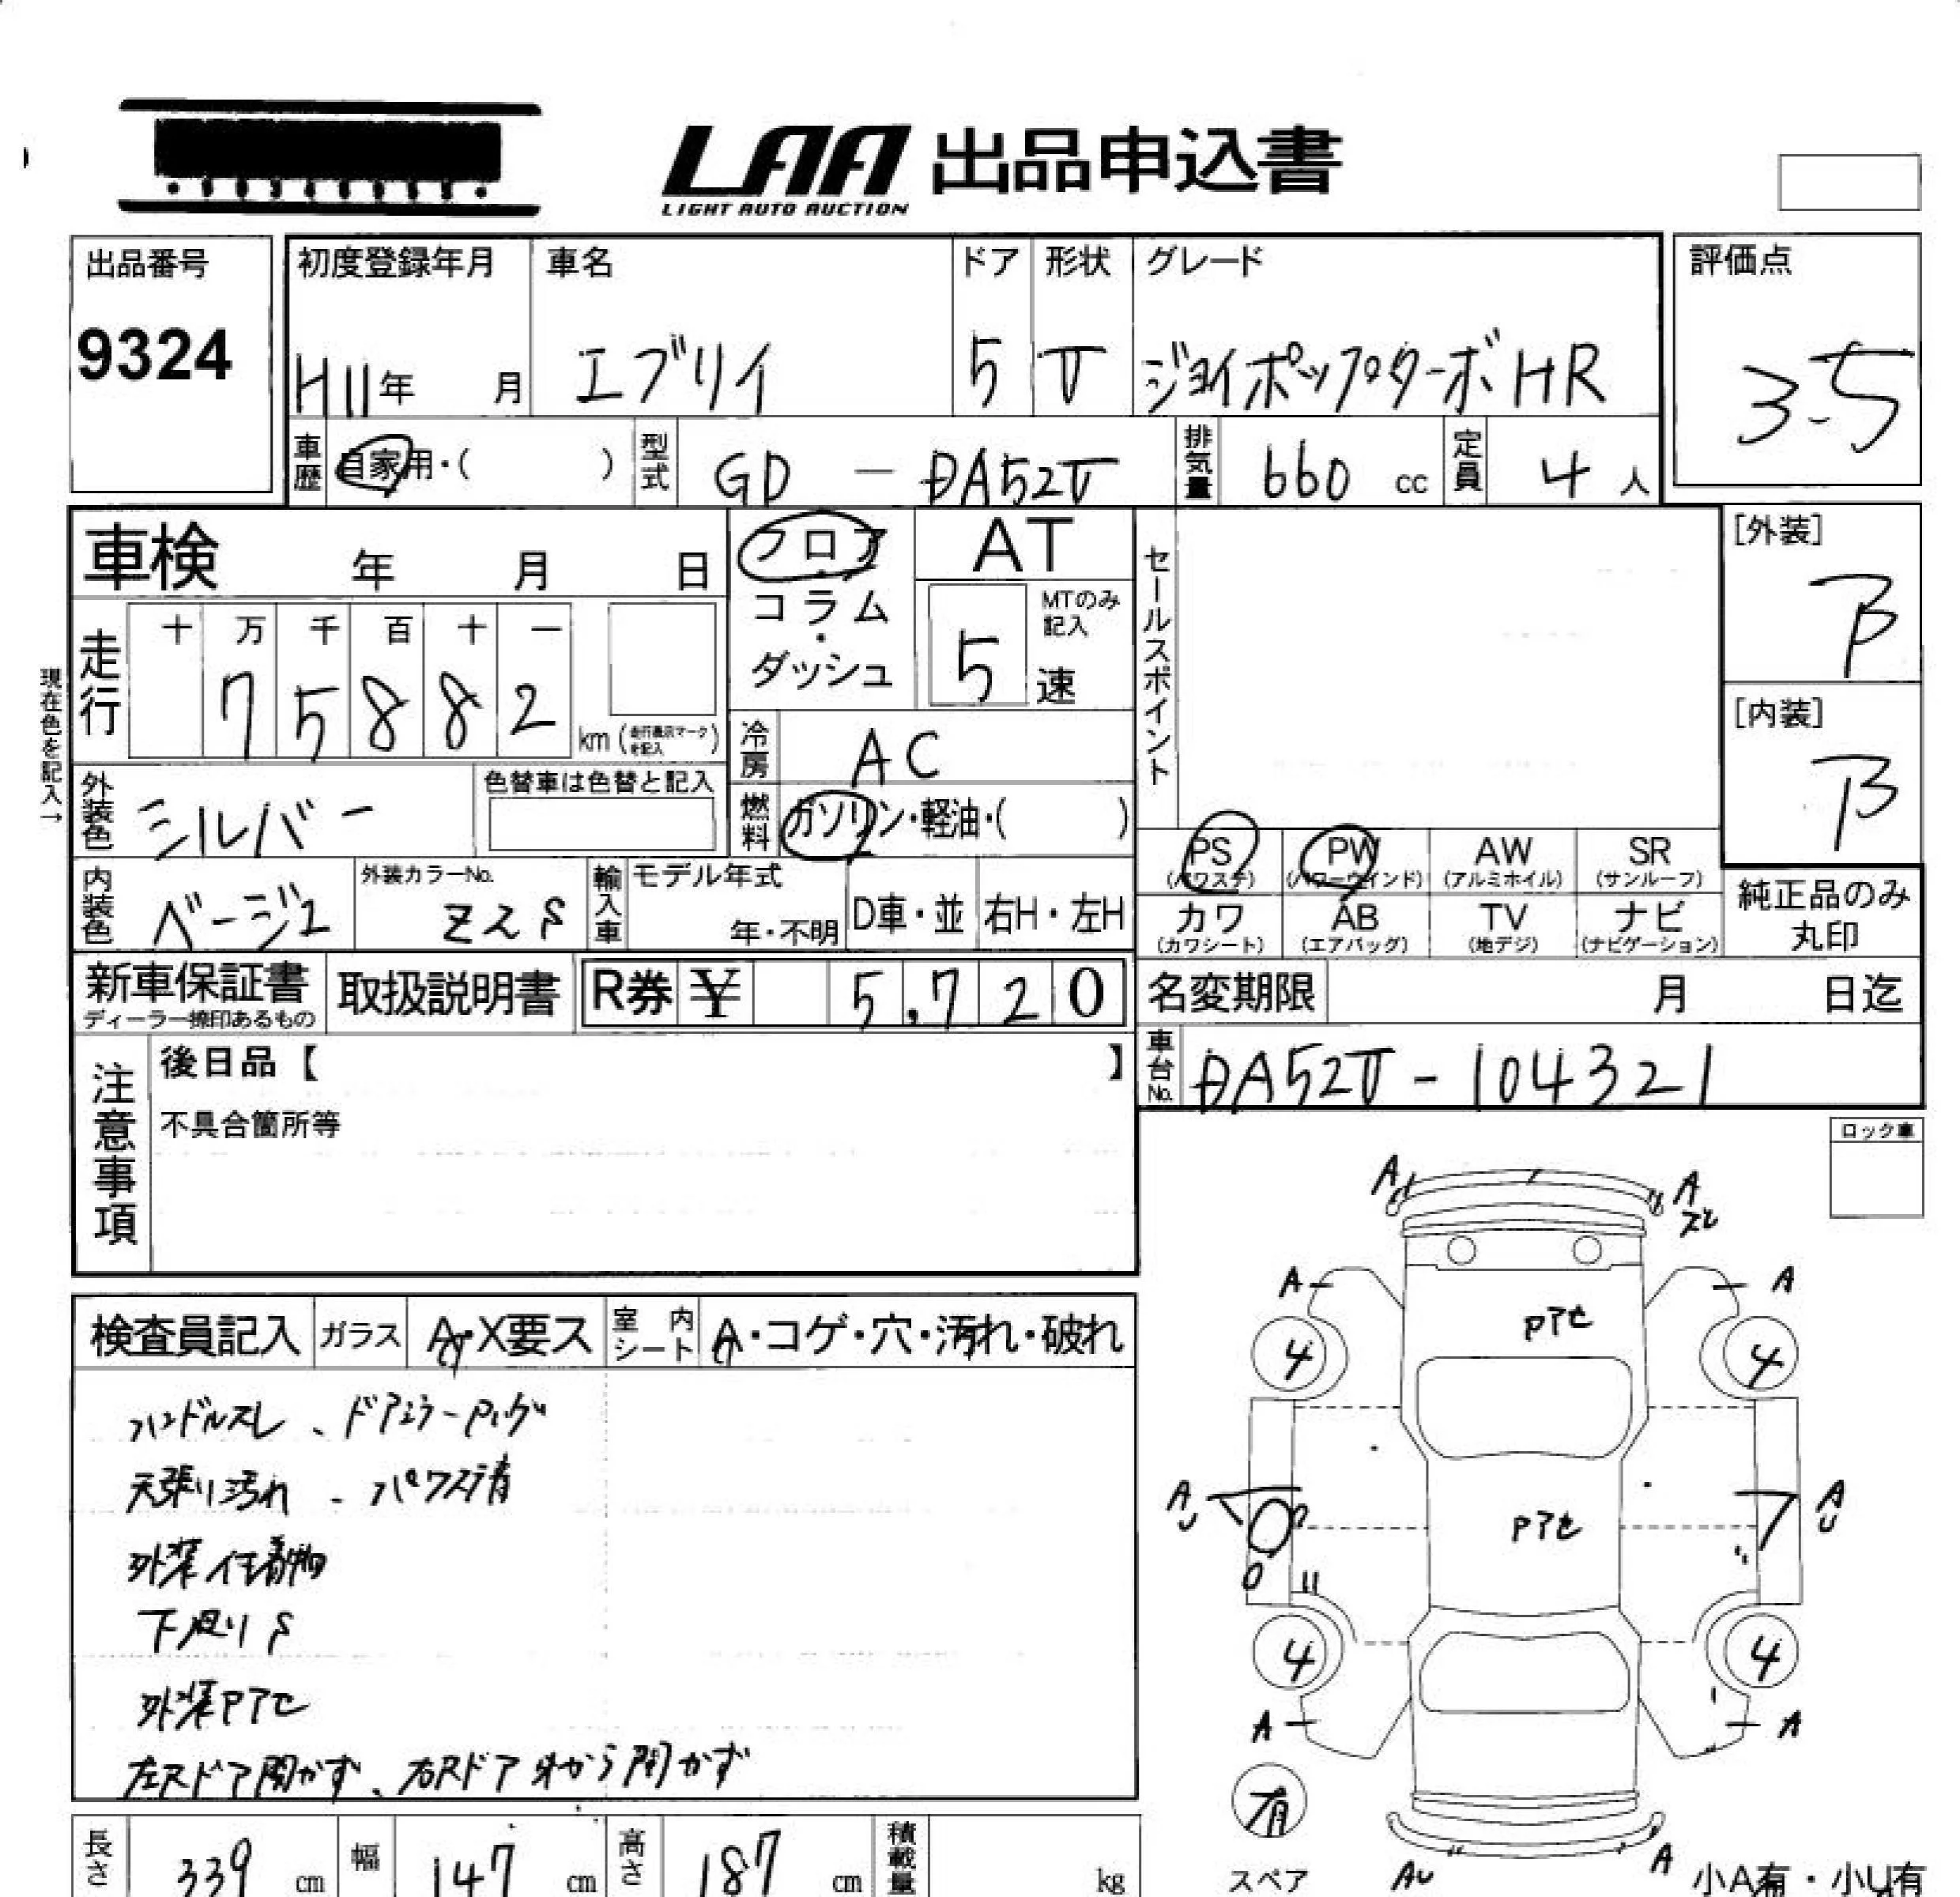 LAA 出品申込書
LIGHT AUTO AUCTION
出品番号 初度登録年月 車名 ドア 形状 グレード 評価点
9324 H11年 月 エブリイ 5 V ジョイポップターボHR 3.5
車歴 自家用・( ) 型式 GD - DA52V 排気量 660 cc 定員 4 人
車検 年 月 日 フロア・コラム・ダッシュ AT セールスポイント [外装] B
現在色を記入→
走行 十 万 千 百 十 一
75882 km (走行表示マークを記入) 5 速 MTのみ記入
冷房 AC [内装] B
外装色 シルバー 色替車は色替と記入 燃料 ガソリン・軽油・( )
PS (パワステ) PW (パワーウインド) AW (アルミホイル) SR (サンルーフ)
内装色 ベージュ 外装カラーNo. Z2S 輸入車 モデル年式 年・不明 D車・並 右H・左H
カワ (カワシート) AB (エアバッグ) TV (地デジ) ナビ (ナビゲーション) 純正品のみ丸印
新車保証書 ディーラー捺印あるもの 取扱説明書 R券 ¥ 5,720 名変期限 月 日迄
車台No. DA52V-104321
注意事項 後日品【 】
不具合箇所等
ロック車
検査員記入 ガラス A・X要ス 室内シート A・コゲ・穴・汚れ・破れ
ハンドルスレ、ドアミラーPハゲ
天張り汚れ、パワステ有
外装付着物
下廻りS
外装Pアセ
左Rドア開かず、右Rドア外から開かず
A A
A A
Pアセ
4 4
AU Pアセ AU
4 4
A A
有
スペア AU A 小A有・小U有
長さ 339 cm 幅 147 cm 高さ 187 cm 積載量 kg